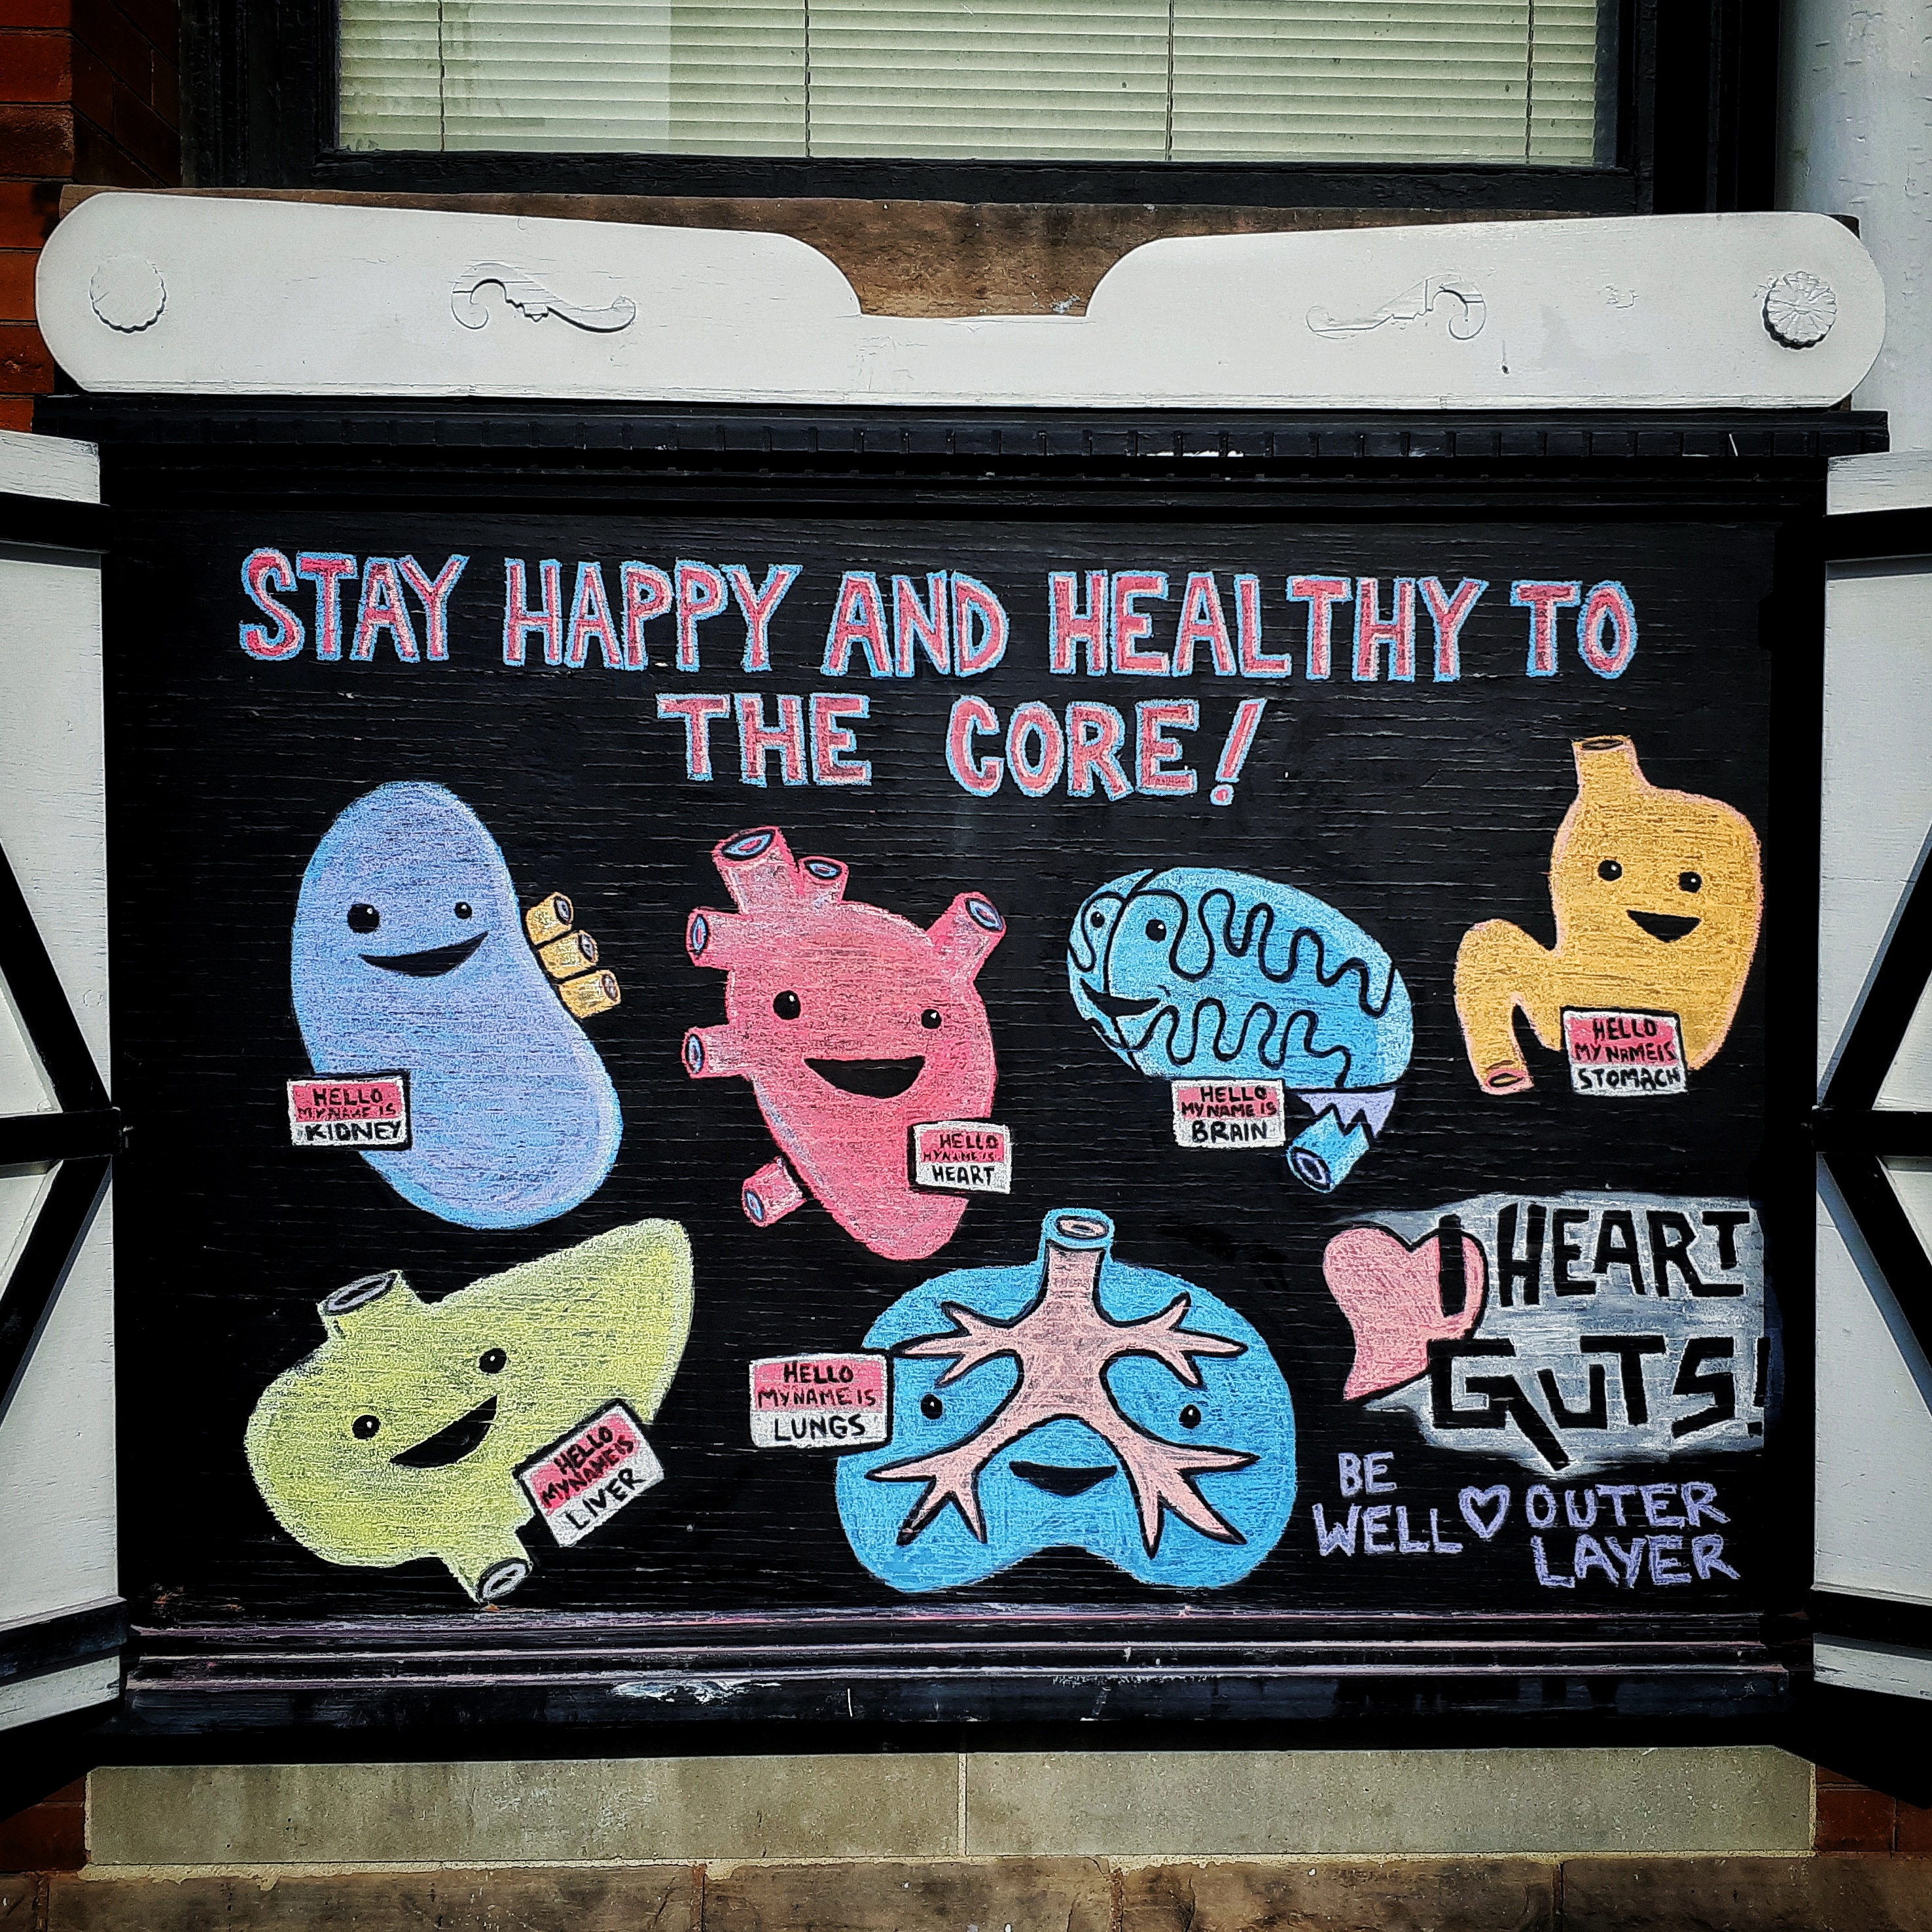 STAY HAPPY AND HEALTHY TO
THE CORE!
HELLO
MY NAME IS
KIDNEY
HELLO
MY NAME IS
HEART
HELLO
MY NAME IS
BRAIN
HELLO
MY NAME IS
STOMACH
HELLO
MY NAME IS
LIVER
HELLO
MY NAME IS
LUNGS
I HEART
GUTS!
BE
WELL ♡ OUTER
LAYER